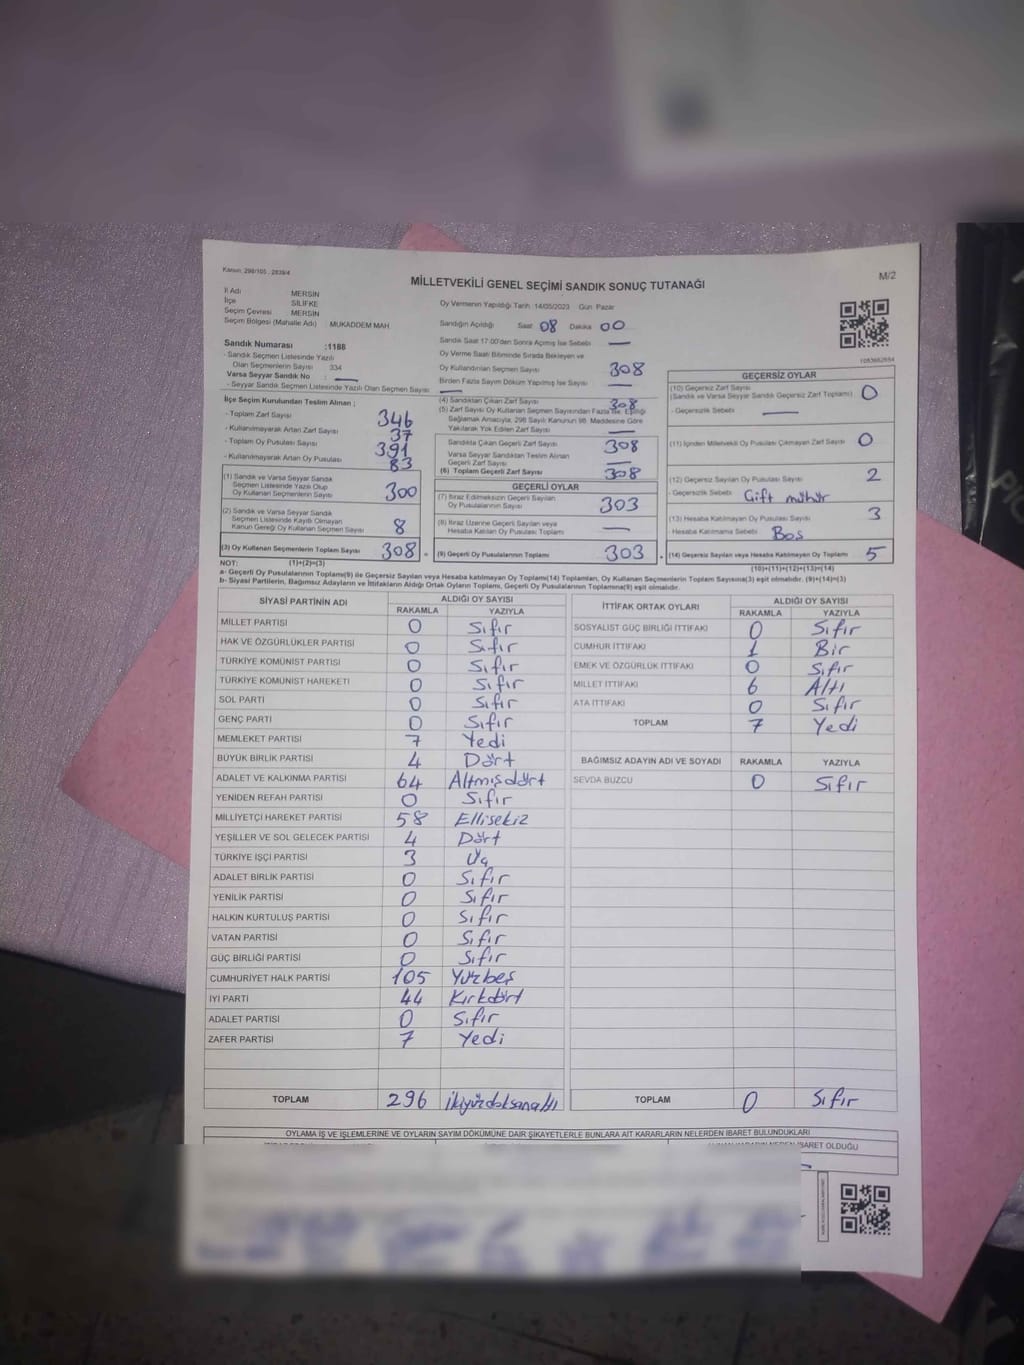 Kanun: 298/105 , 2839/4
M/2
MİLLETVEKİLİ GENEL SEÇİMİ SANDIK SONUÇ TUTANAĞI
İl Adı MERSİN
İlçe SİLİFKE
Seçim Çevresi MERSİN
Seçim Bölgesi (Mahalle Adı) : MUKADDEM MAH.
Sandık Numarası :1188
- Sandık Seçmen Listesinde Yazılı
Olan Seçmenlerin Sayısı 334
Varsa Seyyar Sandık No : —
- Seyyar Sandık Seçmen Listesinde Yazılı Olan Seçmen Sayısı : —
İlçe Seçim Kurulundan Teslim Alınan ;
- Toplam Zarf Sayısı 346
- Kullanılmayarak Artan Zarf Sayısı 37
- Toplam Oy Pusulası Sayısı 391
- Kullanılmayarak Artan Oy Pusulası 83
(1) Sandık ve Varsa Seyyar Sandık
Seçmen Listesinde Yazılı Olup
Oy Kullanan Seçmenlerin Sayısı 300
(2) Sandık ve Varsa Seyyar Sandık
Seçmen Listesinde Kayıtlı Olmayan
Kanun Gereği Oy Kullanan Seçmen Sayısı 8
(3) Oy Kullanan Seçmenlerin Toplam Sayısı 308
(1)+(2)=(3)
Oy Vermenin Yapıldığı Tarih :14/05/2023 Gün Pazar
Sandığın Açıldığı Saat 08 Dakika 00
Sandık Saat 17:00'den Sonra Açılmış İse Sebebi —
Oy Verme Saati Bitiminde Sırada Bekleyen ve
Oy Kullandırılan Seçmen Sayısı 308
Birden Fazla Sayım Döküm Yapılmış İse Sayısı —
(4) Sandıktan Çıkan Zarf Sayısı 308
(5) Zarf Sayısı Oy Kullanan Seçmen Sayısından Fazla İse, Eşitliği
Sağlamak Amacıyla, 298 Sayılı Kanunun 98. Maddesine Göre
Yakılarak Yok Edilen Zarf Sayısı —
Sandıkta Çıkan Geçerli Zarf Sayısı 308
Varsa Seyyar Sandıktan Teslim Alınan
Geçerli Zarf Sayısı —
(6) Toplam Geçerli Zarf Sayısı 308
GEÇERLİ OYLAR
(7) İtiraz Edilmeksizin Geçerli Sayılan
Oy Pusulalarının Sayısı 303
(8) İtiraz Üzerine Geçerli Sayılan veya
Hesaba Katılan Oy Pusulası Toplamı —
(9) Geçerli Oy Pusulalarının Toplamı 303
GEÇERSİZ OYLAR
(10) Geçersiz Zarf Sayısı
(Sandık ve Varsa Seyyar Sandık Geçersiz Zarf Toplamı) 0
- Geçersizlik Sebebi —
(11) İçinden Milletvekili Oy Pusulası Çıkmayan Zarf Sayısı 0
(12) Geçersiz Sayılan Oy Pusulası Sayısı 2
- Geçersizlik Sebebi Çift mühür
(13) Hesaba Katılmayan Oy Pusulası Sayısı 3
- Hesaba Katılmama Sebebi Boş
(14) Geçersiz Sayılan veya Hesaba Katılmayan Oy Toplamı 5
(10)+(11)+(12)+(13)=(14)
NOT:
a- Geçerli Oy Pusulalarının Toplamı(9) ile Geçersiz Sayılan veya Hesaba katılmayan Oy Toplamı(14) Toplamları, Oy Kullanan Seçmenlerin Toplam Sayısına(3) eşit olmalıdır. (9)+(14)=(3)
b- Siyasi Partilerin, Bağımsız Adayların ve İttifakların Aldığı Ortak Oyların Toplamı, Geçerli Oy Pusulalarının Toplamına(9) eşit olmalıdır.
SİYASİ PARTİNİN ADI ALDIĞI OY SAYISI
RAKAMLA YAZIYLA
MİLLET PARTİSİ 0 Sıfır
HAK VE ÖZGÜRLÜKLER PARTİSİ 0 Sıfır
TÜRKİYE KOMÜNİST PARTİSİ 0 Sıfır
TÜRKİYE KOMÜNİST HAREKETİ 0 Sıfır
SOL PARTİ 0 Sıfır
GENÇ PARTİ 0 Sıfır
MEMLEKET PARTİSİ 7 Yedi
BÜYÜK BİRLİK PARTİSİ 4 Dört
ADALET VE KALKINMA PARTİSİ 64 Altmışdört
YENİDEN REFAH PARTİSİ 0 Sıfır
MİLLİYETÇİ HAREKET PARTİSİ 58 Ellisekiz
YEŞİLLER VE SOL GELECEK PARTİSİ 4 Dört
TÜRKİYE İŞÇİ PARTİSİ 3 Üç
ADALET BİRLİK PARTİSİ 0 Sıfır
YENİLİK PARTİSİ 0 Sıfır
HALKIN KURTULUŞ PARTİSİ 0 Sıfır
VATAN PARTİSİ 0 Sıfır
GÜÇ BİRLİĞİ PARTİSİ 0 Sıfır
CUMHURİYET HALK PARTİSİ 105 Yüzbeş
İYİ PARTİ 44 Kırkdört
ADALET PARTİSİ 0 Sıfır
ZAFER PARTİSİ 7 Yedi
TOPLAM 296 ikiyüzdoksanaltı
İTTİFAK ORTAK OYLARI ALDIĞI OY SAYISI
RAKAMLA YAZIYLA
SOSYALİST GÜÇ BİRLİĞİ İTTİFAKI 0 Sıfır
CUMHUR İTTİFAKI 1 Bir
EMEK VE ÖZGÜRLÜK İTTİFAKI 0 Sıfır
MİLLET İTTİFAKI 6 Altı
ATA İTTİFAKI 0 Sıfır
TOPLAM 7 Yedi
BAĞIMSIZ ADAYIN ADI VE SOYADI RAKAMLA YAZIYLA
SEVDA BUZCU 0 Sıfır
TOPLAM 0 Sıfır
OYLAMA İŞ VE İŞLEMLERİNE VE OYLARIN SAYIM DÖKÜMÜNE DAİR ŞİKAYETLERLE BUNLARA AİT KARARLARIN NELERDEN İBARET BULUNDUKLARI